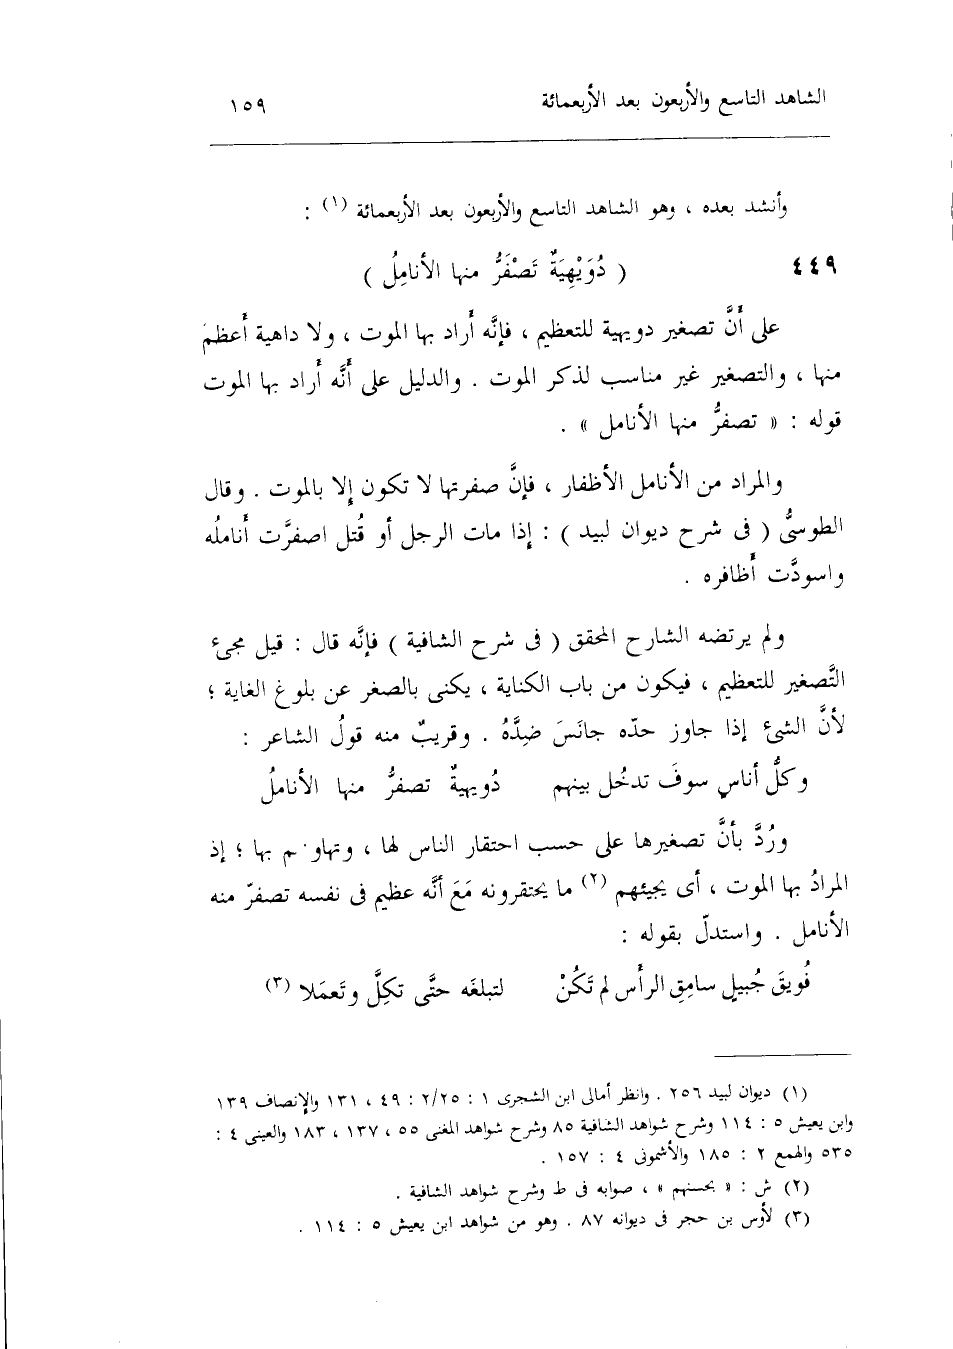 الشاهد التاسع والأربعون بعد الأربعمائة ١٥٩
وأنشد بعده ، وهو الشاهد التاسع والأربعون بعد الأربعمائة (١) :
٤٤٩ ( دُوَيْهِيَةٌ تَصْفَرُّ منها الأنامِلُ )
على أَنَّ تصغير دويهية للتعظيم ، فإنَّه أَراد بها الموت ، ولا داهية أَعظمَ
منها ، والتصغير غير مناسب لذكر الموت . والدليل على أَنَّه أَراد بها الموت
قوله : « تصفرُّ منها الأنامل » .
والمراد من الأنامل الأظفار ، فإنَّ صفرتها لا تكون إلا بالموت . وقال
الطوسىُّ ( فى شرح ديوان لبيد ) : إذا مات الرجل أو قُتل اصفرَّت أَناملُه
واسودَّت أَظافره .
ولم يرتضه الشارح المحقق ( فى شرح الشافية ) فإنَّه قال : قيل مجىء
التَّصغير للتعظيم ، فيكون من باب الكناية ، يكنى بالصغر عن بلوغ الغاية ؛
لأنَّ الشىء إذا جاوز حدّه جانَسَ ضِدَّهُ . وقريبٌ منه قولُ الشاعر :
وكلُّ أناسٍ سوفَ تدخُل بينهم دُويهيةٌ تصفرُّ منها الأناملُ
ورُدَّ بأنَّ تصغيرها على حسب احتقار الناس لها ، وتهاو م بها ؛ إذ
المرادُ بها الموت ، أى يجيئهم (٢) ما يحتقرونه مَعَ أنَّه عظيم فى نفسه تصفرّ منه
الأنامل . واستدلّ بقوله :
فُويقَ جُبيلٍ سامِقِ الرأَس لم تَكُنْ لتبلغَه حتَّى تكِلَّ وتَعمَلا (٣)
(١) ديوان لبيد ٢٥٦ . وانظر أمالى ابن الشجرى ١ : ٢/٢٥ : ٤٩ ، ١٣١ والإنصاف ١٣٩
وابن يعيش ٥ : ١١٤ وشرح شواهد الشافية ٨٥ وشرح شواهد المغنى ٥٥ ، ١٣٧ ، ١٨٣ والعينى ٤ :
٥٣٥ والهمع ٢ : ١٨٥ والأشمونى ٤ : ١٥٧ .
(٢) ش : « بحسنهم » ، صوابه فى ط وشرح شواهد الشافية .
(٣) لأوس بن حجر فى ديوانه ٨٧ . وهو من شواهد ابن يعيش ٥ : ١١٤ .